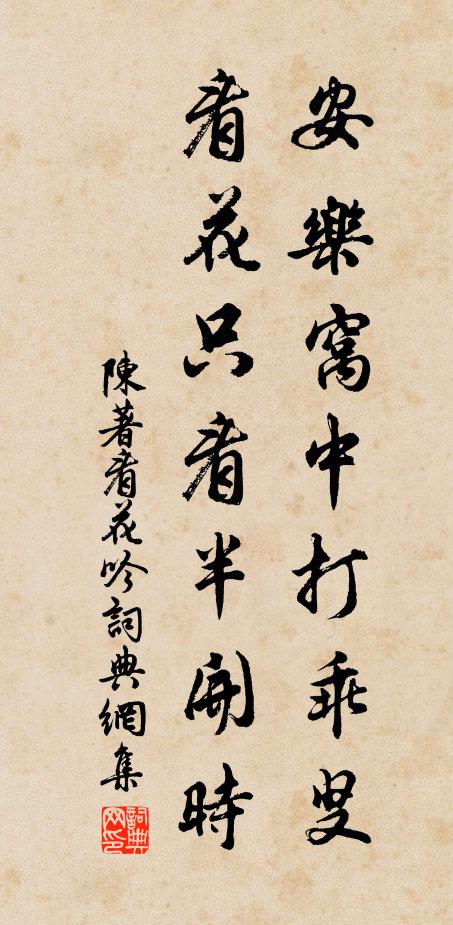 安樂窩中打乖叟
看花只看半開時
陳著看花吟詞典網集
詞典網印